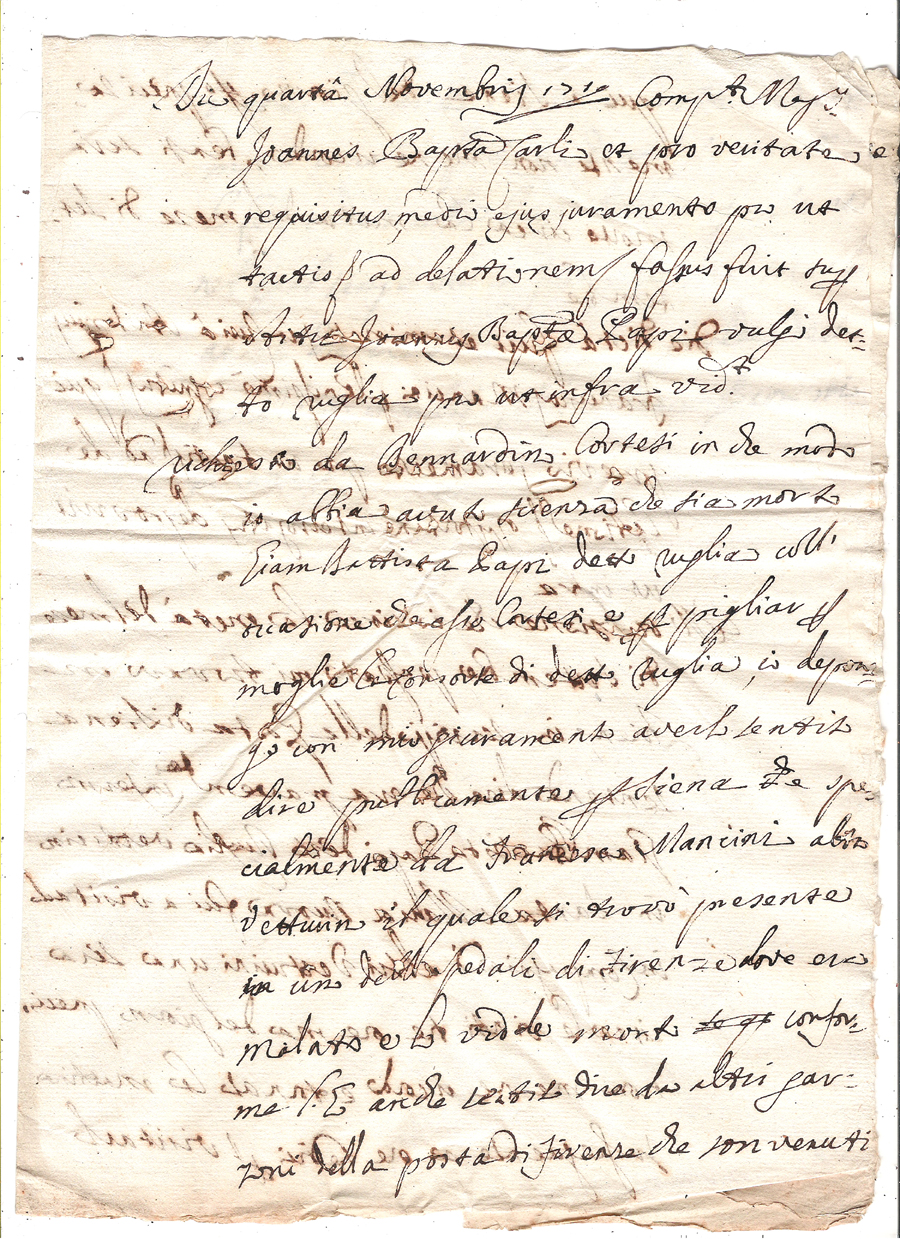 Die quartâ Novembrij 1710 Comp.t Mag.r
Joannes Bapta Carli et pro veritate
requisitus medio ejus juramento pro ut
tactis ad delationem fassus fuit
obitu Joannis Baptæ Papi vulgi det=
to Puglia pro ut infra vid.t
Richiesto da Bernardin Cortesi in che modo
io abbia avuto scienza che sia morto
Giam Battista Papi detto Puglia coll'
occasione che esso Cortesi è p pigliar p
moglie la Consorte di detto Puglia, io depon=
go con mio giuramento averlo sentito
dire pubblicamente p Siena e spe=
cialmente da Francesco Mancini altro
Vetturin il quale si trovò presente
in un delli spedali di Firenze dove era
Malato e lo vidde morto confor=
me l'ò anche sentito dire da altri gar=
zoni della posta di Firenze che son venuti